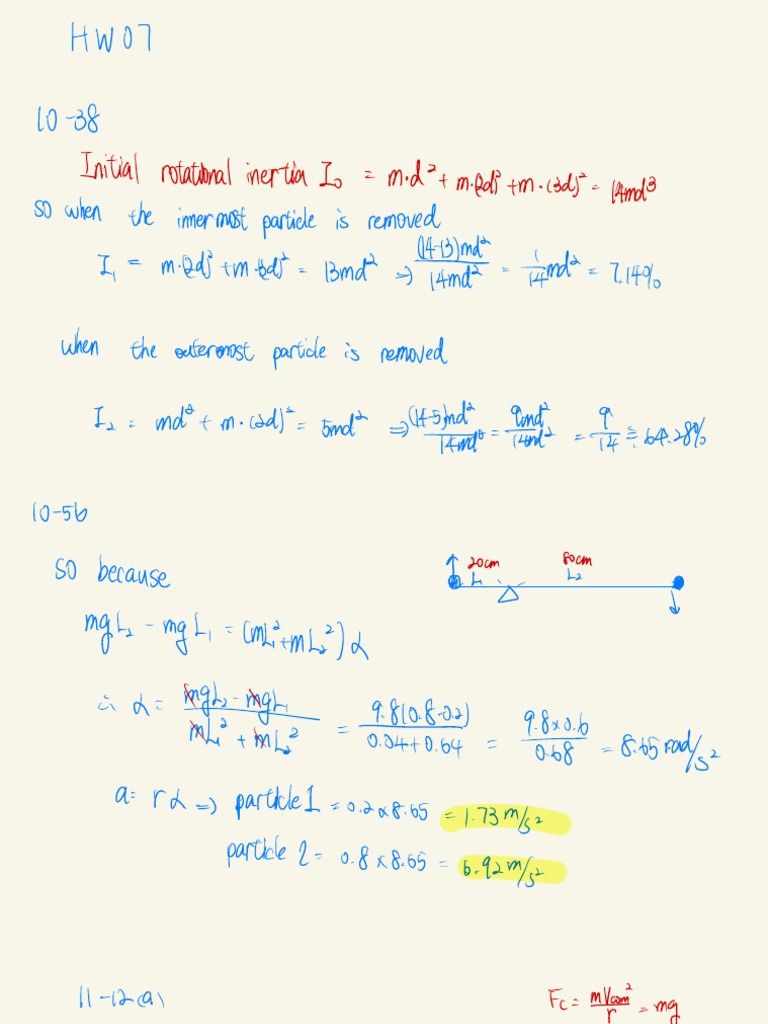 HW07
10-38
Initial rotational inertia I₀ = m·d² + m·(2d)² + m·(3d)² = 14md³
SO when the innermost particle is removed
I₁ = m·(2d)² + m·(3d)² = 13md² => (14-13)md² / 14md² = 1/14 md² = 7.14%
when the outermost particle is removed
I₂ = md² + m·(2d)² = 5md² => (14-5)md² / 14md² = 9md² / 14md² = 9/14 ≅ 64.28%
10-56
so because
20cm 80cm
L₁ L₂
mgL₂ - mgL₁ = (mL₁² + mL₂²)α
∴ α = mgL₂ - mgL₁ / mL₁² + mL₂² = 9.8(0.8-0.2) / 0.04+0.64 = 9.8×0.6 / 0.68 = 8.65 rad/s²
a = rα => particle 1 = 0.2×8.65 = 1.73 m/s²
particle 2 = 0.8×8.65 = 6.92 m/s²
11-12(a)
Fc = mVcom² / r = mg